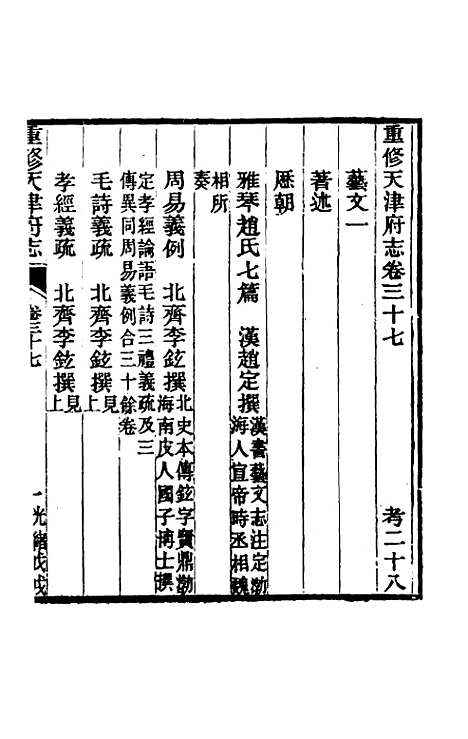 重修天津府志卷三十七　考二十八
藝文一
著述
歷朝
雅琴趙氏七篇　漢趙定撰漢書藝文志注定渤海人宣帝時丞相魏
相所奏
周易義例　北齊李鉉撰北史本傳鉉字寶鼎渤海南皮人國子博士撰
定孝經論語毛詩三禮義疏及三傳異同周易義例合三十餘卷
毛詩義疏　北齊李鉉撰見上
孝經義疏　北齊李鉉撰見上
重修天津府志　卷三十七　一　光緒戊戌